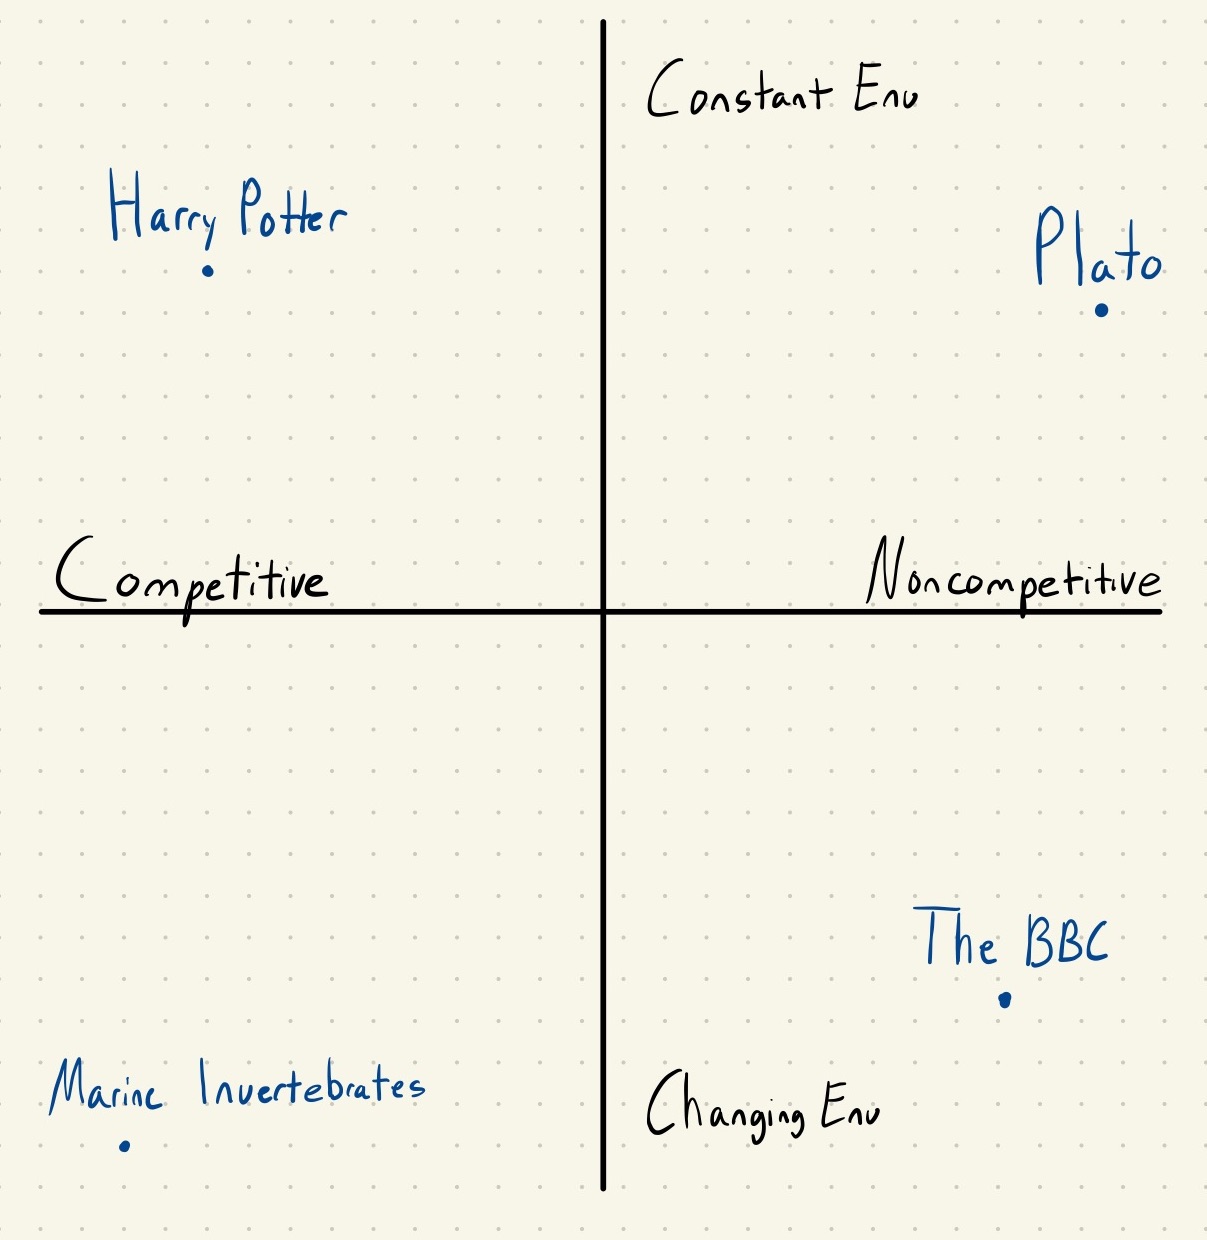 Constant Env
Harry Potter
Plato
Competitive
Noncompetitive
The BBC
Marine Invertebrates
Changing Env